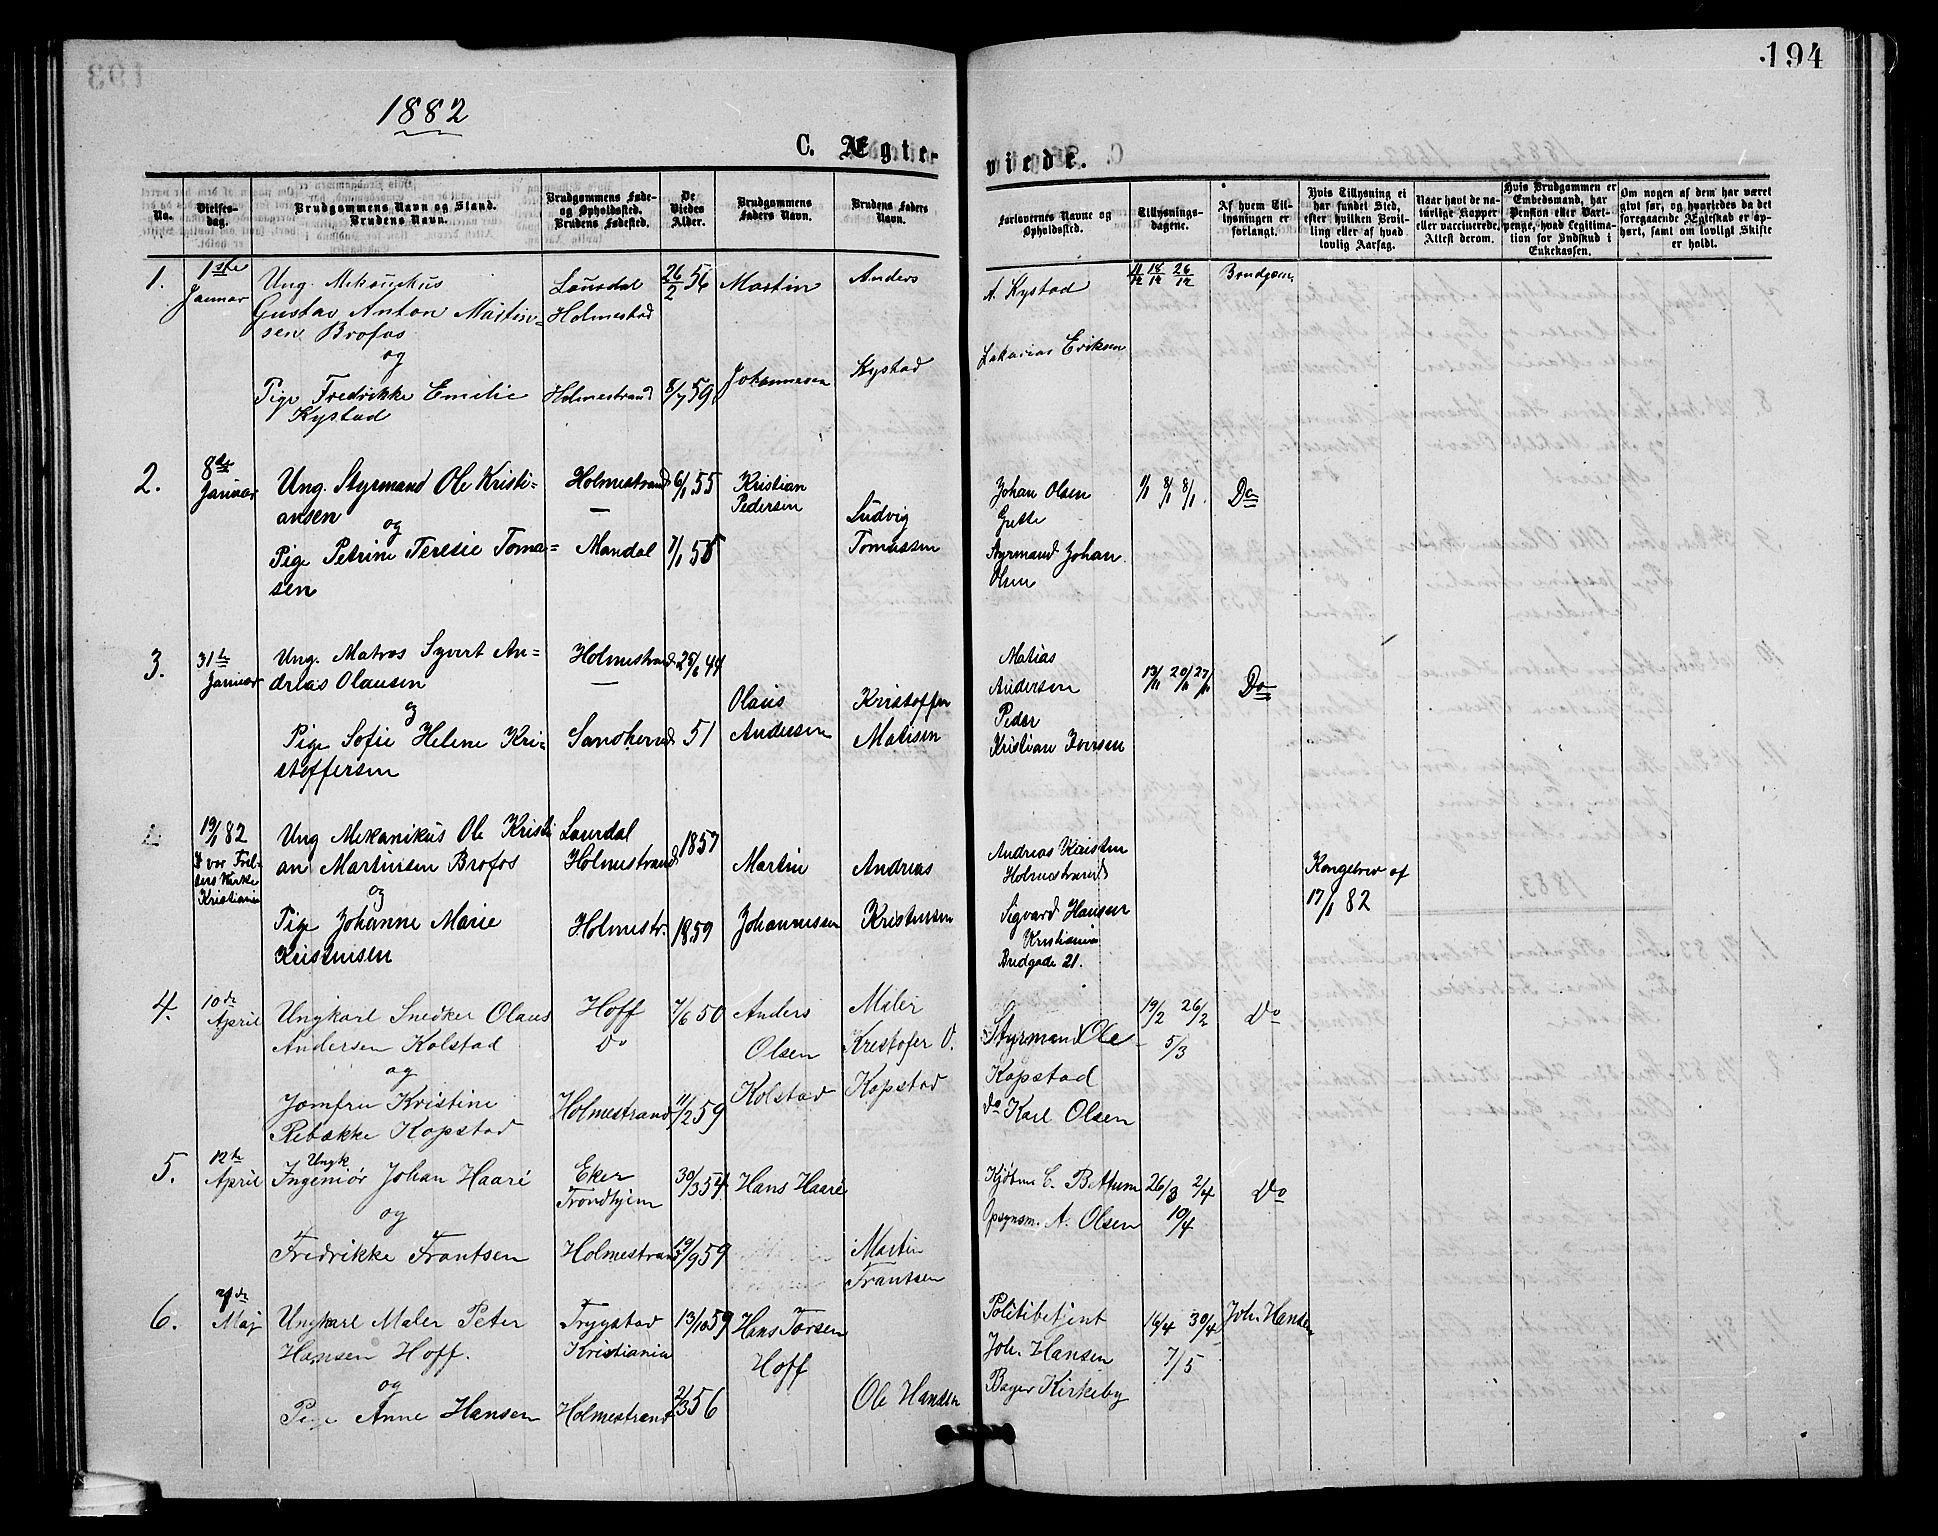 194
1882
C. Ægte-
viede.
No.
Vielses-
dag.
Brudgommens Navn og Stand.
Brudens Navn.
Brudgommens Føde-
og Opholdssted.
Brudens Fødested.
De
Viedes
Alder.
Brudgommens
Faders Navn.
Brudens Faders
Navn.
Forlovernes Navne og
Opholdssted.
Tillysnings-
dagene.
Af hvem Til-
lysningen er
forlangt.
Hvis Tillysning ei
har fundet Sted,
efter hvilken Bevil-
ling eller af hvad
lovlig Aarsag.
Naar havt de na-
turlige Kopper
eller vaccinerede.
Attest derom.
Hvis Brudgommen er
Embedsmand, har
Pension eller Vart-
penge, hvad Legitima-
tion for Indskud i
Enkekassen.
Om nogen af dem har været
gift før, og hvorledes da det
foregaaende Ægteskab er op-
hørt, samt om lovligt Skifte
er holdt.
1.
1ste
Januar
Ung. Mekanikus
Gustav Anton Martin-
sen Brofos
og
Pige Fredrikke Emilie
Kystad
Laurdal
Holmestad
Holmestrand
26/2 56
8/7 59
Martin
Johannesen
Anders
Kystad
A. Kystad
Zakarias Eriksen
11/12 18/12 26/12
Brudgom
2.
8de
Januar
Ung. Styrmand Ole Kristi-
ansen
og
Pige Petrine Teresie Toma-
sen
Holmestrand
—
Mandal
6/1 55
7/1 55
Kristian
Pedersen
Ludvig
Tomassen
Johan Olsen
Grette
Styrmand Johan
Olsen
1/1 8/1 8/1.
Do
3.
31te
Januar
Ung. Matros Syvert An-
dreas Olausen
og
Pige Sofie Helene Kri-
stoffersen
Holmestrand
—
Sandherred
25/6 44
51
Olaus
Andersen
Kristoffer
Matisen
Matias
Andersen
Peder
Kristian Iversen
13/11 20/11 27/11
Do
19/1 82
I vor Frel-
sers Kirke
Kristiania
Ung Mekanikus Ole Kristi
an Martinsen Brofos
og
Pige Johanne Marie
Kristensen
Laurdal
Holmestrand
Holmestr.
1857
1859
Martin
Johannessen
Andreas
Kristensen
Andreas Kristen
Holmestrand
Sigvard Hansen
Kristiania
Bredgade 21.
Kongebrev af
17/1 82
4.
10de
April
Ungkarl Snedker Olaus
Andersen Kolstad
og
Jomfru Kristine
Rebække Kopstad
Hoff
Do
Holmestrand
7/6 50
11/2 59
Anders
Olsen
Kolstad
Maler
Krestofer O.
Kopstad
Styrmand Ole
Kopstad
do Karl Olsen
19/2 26/2
5/3
Do
5.
12te
April
Ungk
Ingeniør Johan Haaré
og
Fredrikke Frantsen
Eker
Trondhjem
Holmestrand
30/3 54
19/9 59
Hans Haaré
Martin
Frantsen
Kjøbm C. Bettum
Opsynsm. A. Olsen
26/3 2/4
10/4
Do
6.
7de
Maj
Ungkarl Maler Peter
Hansen Hoff.
og
Pige Anne Hansen
Trygstad
Kristiania
Holmestrand
13/10 59
2/3 56
Hans Torsen
Hoff
Ole Hansen
Politibetjent
Joh. Hansen
Bager Kirkeby
16/4 30/4
7/5
Joh. Hansen